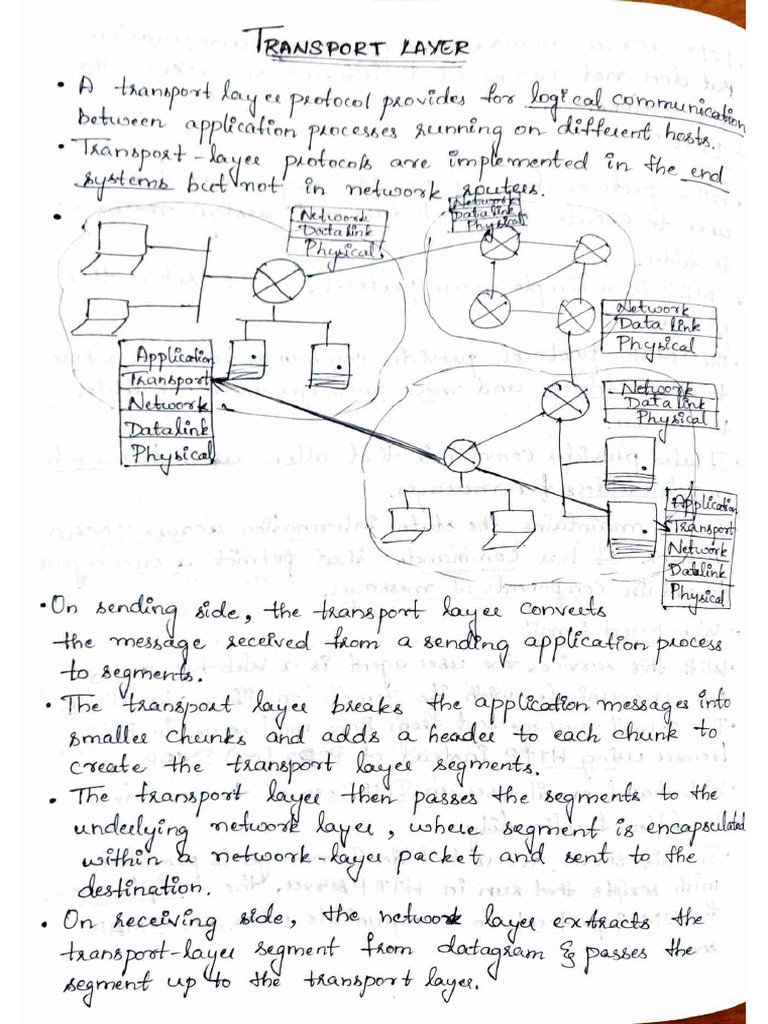 TRANSPORT LAYER
• A transport layer protocol provides for logical communication
between application processes running on different hosts.
• Transport-layer protocols are implemented in the end
systems but not in network routers.
•
Network
Datalink
Physical
Network
Datalink
Physical
Network
Data link
Physical
Application
Transport
Network
Datalink
Physical
Network
Datalink
Physical
Application
Transport
Network
Datalink
Physical
• On sending side, the transport layer converts
the message received from a sending application process
to segments.
• The transport layer breaks the application messages into
smaller chunks and adds a header to each chunk to
create the transport layer segments.
• The transport layer then passes the segments to the
underlying network layer, where segment is encapsulated
within a network-layer packet and sent to the
destination.
• On receiving side, the network layer extracts the
transport-layer segment from datagram & passes the
segment up to the transport layer.